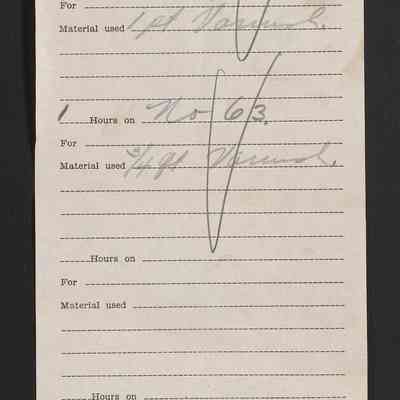 For
Material used 1 pt Varnish.
1 Hours on No 63.
For
Material used 3/4 qt Varnish.
Hours on
For
Material used
Hours on